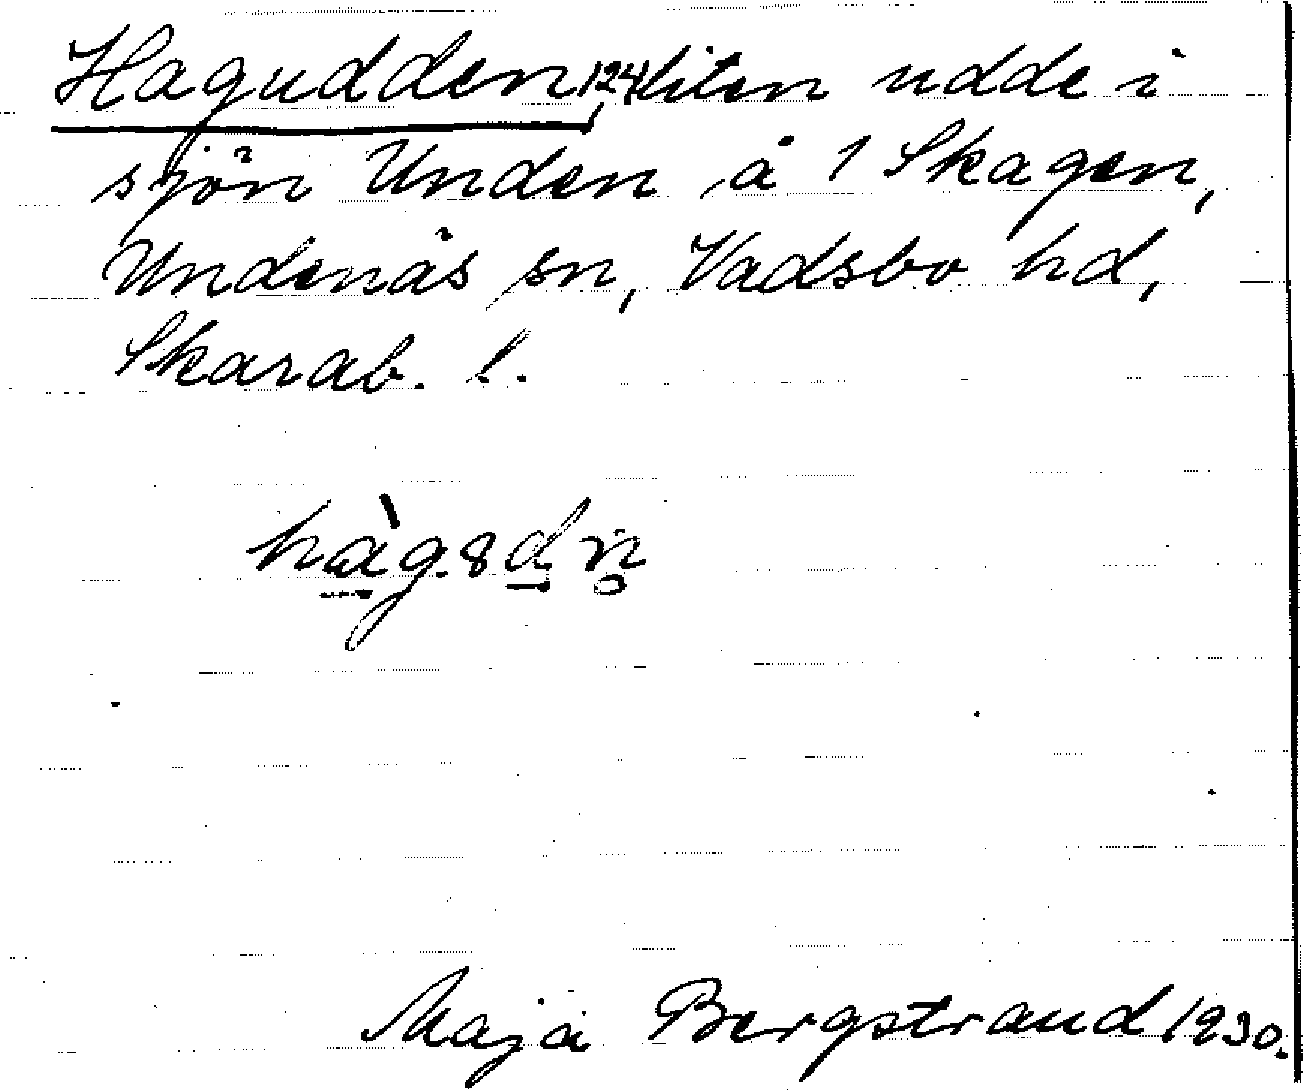 Hagudden, 124, liten udde i
sjön Unden å 1 Skagen,
Undenås sn, Vadsbo hd,
Skarab. l.
Maja Bergstrand 1930.